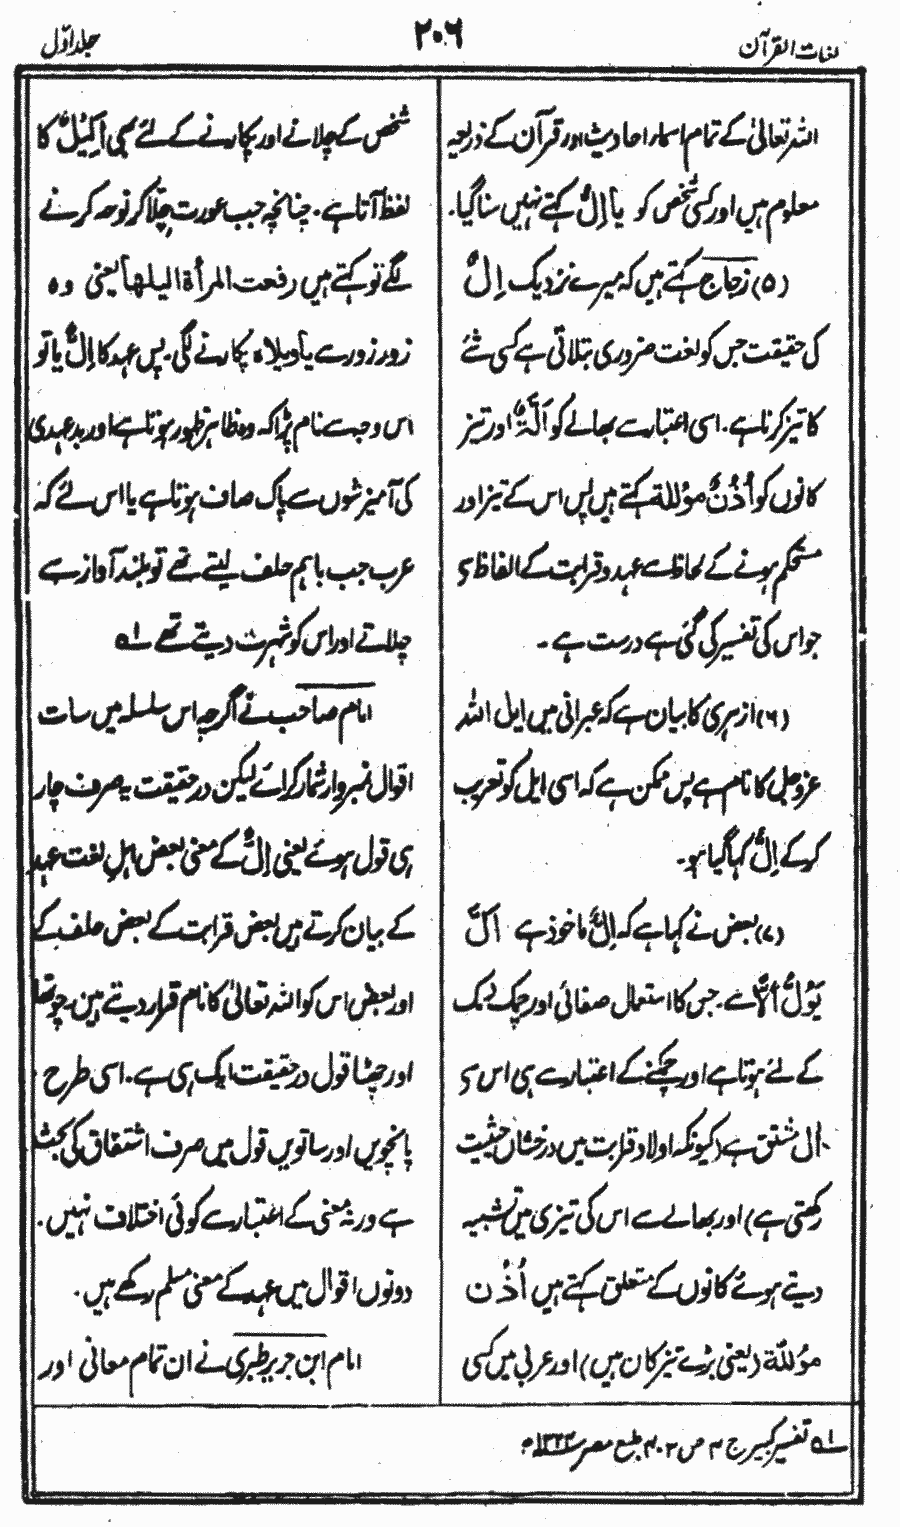 لغات القرآن
۲۰۶
جلد اوّل
اللہ تعالیٰ کے تمام اسماء احادیث اور قرآن کے ذریعہ
معلوم ہیں اور کسی شخص کو یا اِلُّ کہتے نہیں سنا گیا۔
(۵) زجاج کہتے ہیں کہ میرے نزدیک اِلٌّ
کی حقیقت جس کو لغت ضروری بتلاتی ہے کسی شئے
کا تیز کرنا ہے۔ اسی اعتبار سے بھالے کو اَلَّۃٌ اور تیز
کانوں کو اُذُنٌ مؤللۃ کہتے ہیں پس اس کے تیز اور
مستحکم ہونے کے لحاظ سے عہد و قرابت کے الفاظ سے
جو اس کی تفسیر کی گئی ہے درست ہے ۔
(۶) ازہری کا بیان ہے کہ عبرانی میں ایل اللہ
عزوجل کا نام ہے پس ممکن ہے کہ اسی ایل کو تعریب
کر کے اِلٌّ کہا گیا ہو۔
(۷) بعض نے کہا ہے کہ اِلٌّ ماخوذ ہے اَلَّ
یَؤُلُّ اَلًّا سے۔ جس کا استعمال صفائی اور چمک دمک
کے لئے ہوتا ہے اور چمکنے کے اعتبار سے ہی اس سے
اِلّ مشتق ہے (کیونکہ اولاد قرابت میں درخشاں حیثیت
رکھتی ہے) اور بھالے سے اس کی تیزی میں تشبیہ
دیتے ہوئے کانوں کے متعلق کہتے ہیں اُذُن
مؤللّۃ (یعنی بڑے تیز کان ہیں) اور عربی میں کسی
شخص کے چلانے اور پکارنے کے لئے بھی اَلِیْلٌ کا
لفظ آتا ہے۔ چنانچہ جب عورت چِلّا کر نوحہ کرنے
لگے تو کہتے ہیں رفعت المرأۃ الیلھا یعنی وہ
زور زور سے یا ویلاہ پکارنے لگی۔ پس عہد کا اِلٌّ یا تو
اس وجہ سے نام پڑا کہ وہ ظاہر ظہور ہوتا ہے اور بدعہدی
کی آمیزشوں سے پاک صاف ہوتا ہے یا اس لئے کہ
عرب جب باہم حلف لیتے تھے تو بلند آواز سے
چلاتے اور اس کو شہرت دیتے تھے ۱؎
امام صاحب نے اگرچہ اس سلسلہ میں سات
اقوال نمبروار شمار کرائے لیکن در حقیقت یہ صرف چار
ہی قول ہوئے یعنی اِلٌّ کے معنی بعض اہلِ لغت عہد
کے بیان کرتے ہیں بعض قرابت کے بعض حلف کے
اور بعض اس کو اللہ تعالیٰ کا نام قرار دیتے ہیں۔ چوتھا
اور چھٹا قول در حقیقت ایک ہی ہے۔ اسی طرح
پانچویں اور ساتویں قول میں صرف اشتقاق کی بحث
ہے ورنہ معنی کے اعتبار سے کوئی اختلاف نہیں۔
دونوں اقوال میں عہد کے معنی مسلم رکھے ہیں۔
امام ابن جریر طبری نے ان تمام معانی اور
۱؎ تفسیر کبیر ج ۴ ص ۴۰۲ طبع مصر ۱۳۲۴ھ